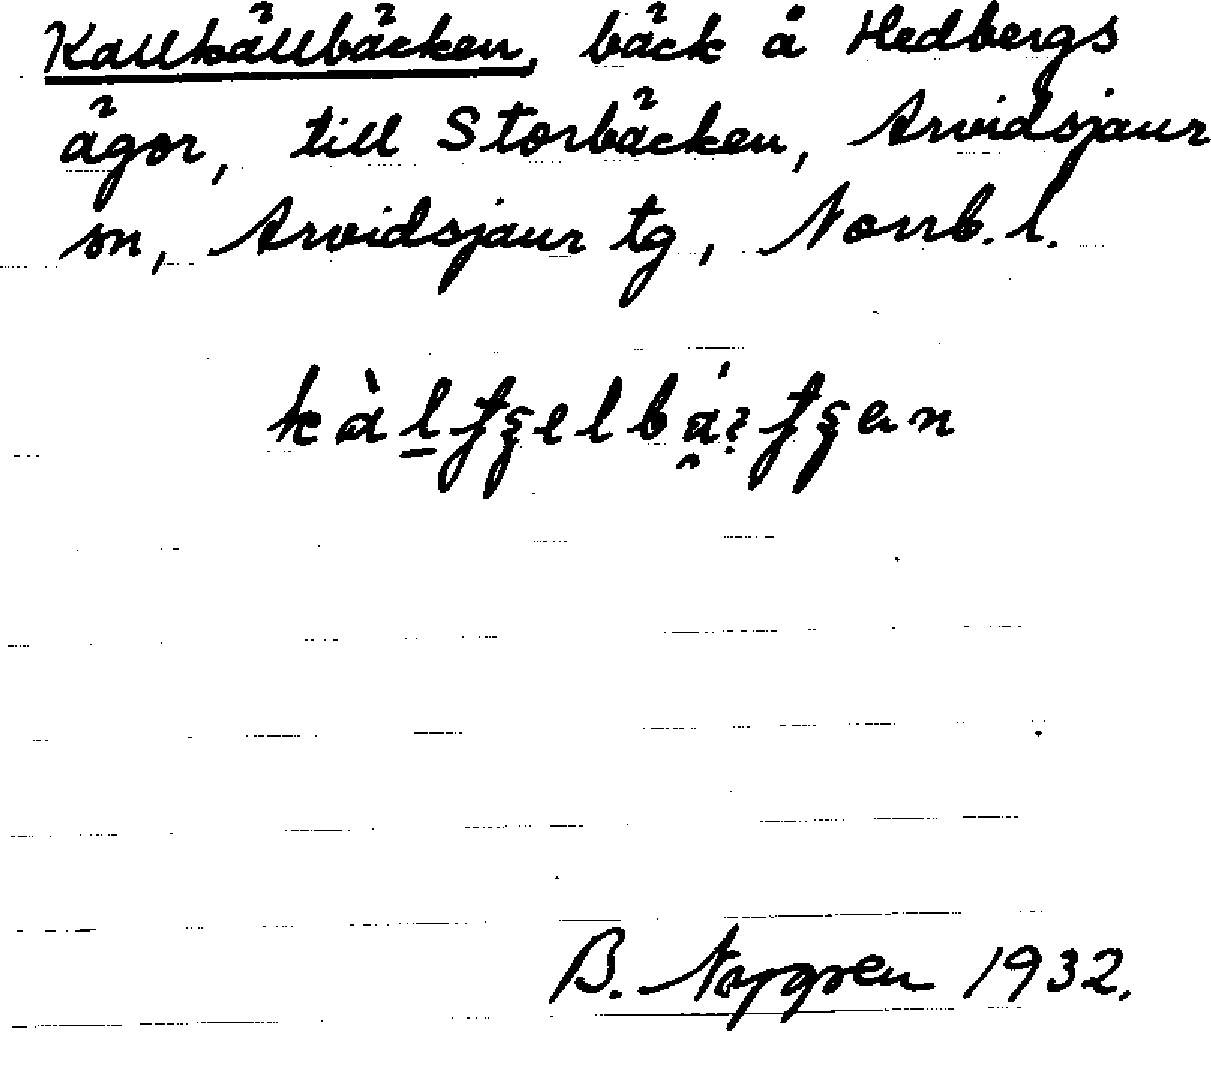 Kallkällbäcken, bäck å Hedbergs
ägor, till Storbäcken, Arvidsjaur
sn, Arvidsjaur tg, Norrb. l.
B. 1932.